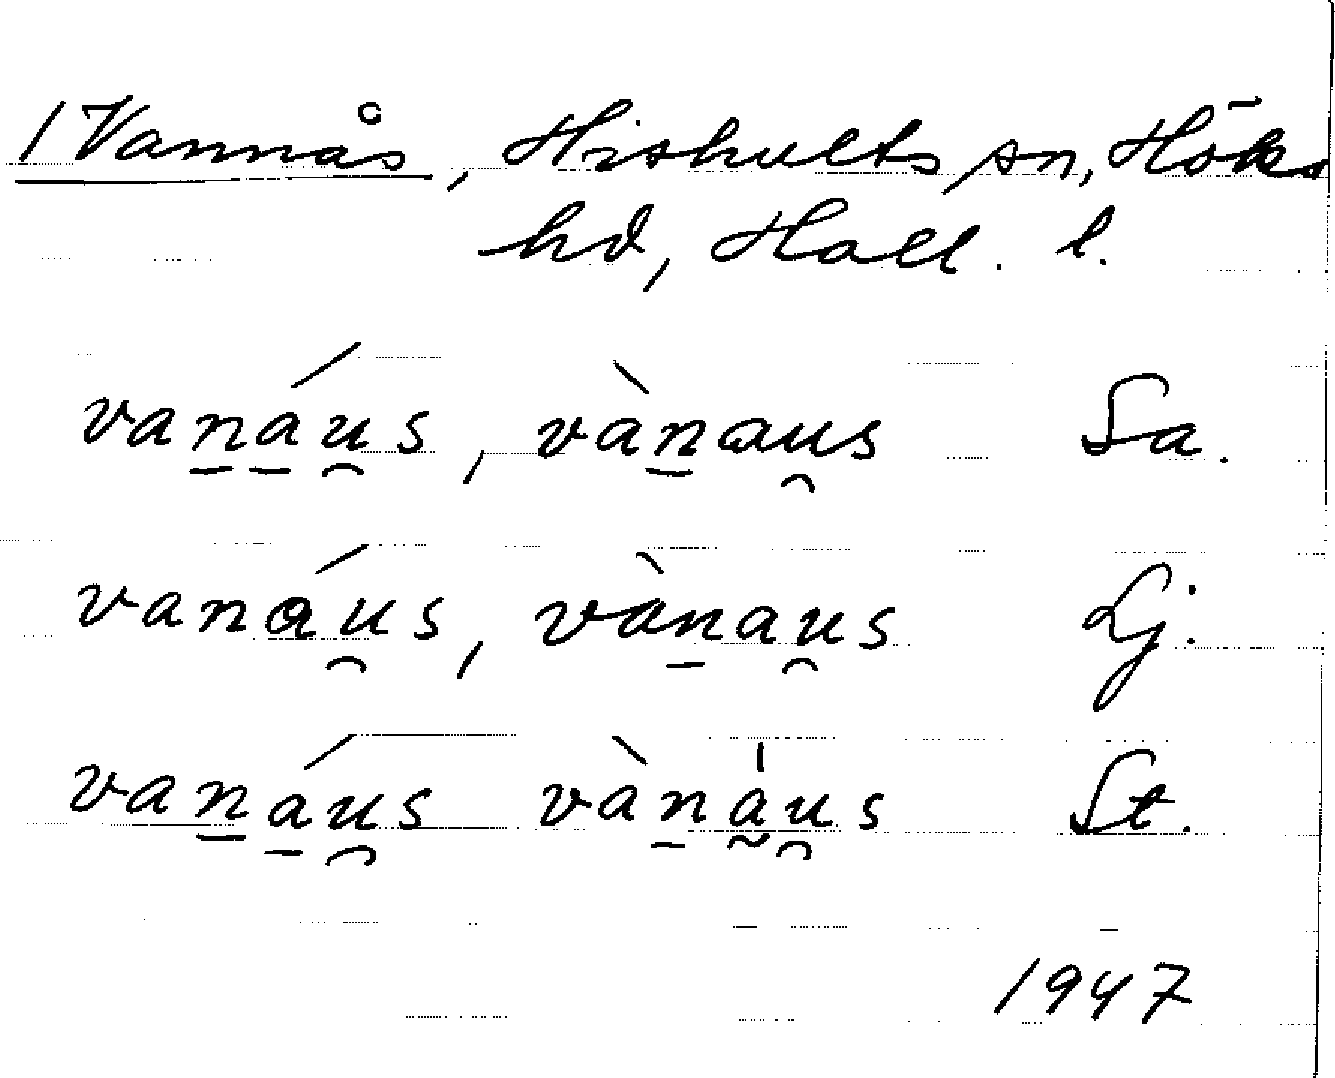 1 Vannås, Hishults sn, Höks
hd, Hall. l.
vanáu̯s, vànau̯s Sa.
vanáu̯s, vànau̯s Lj.
vanáu̯s vànau̯s St.
1947